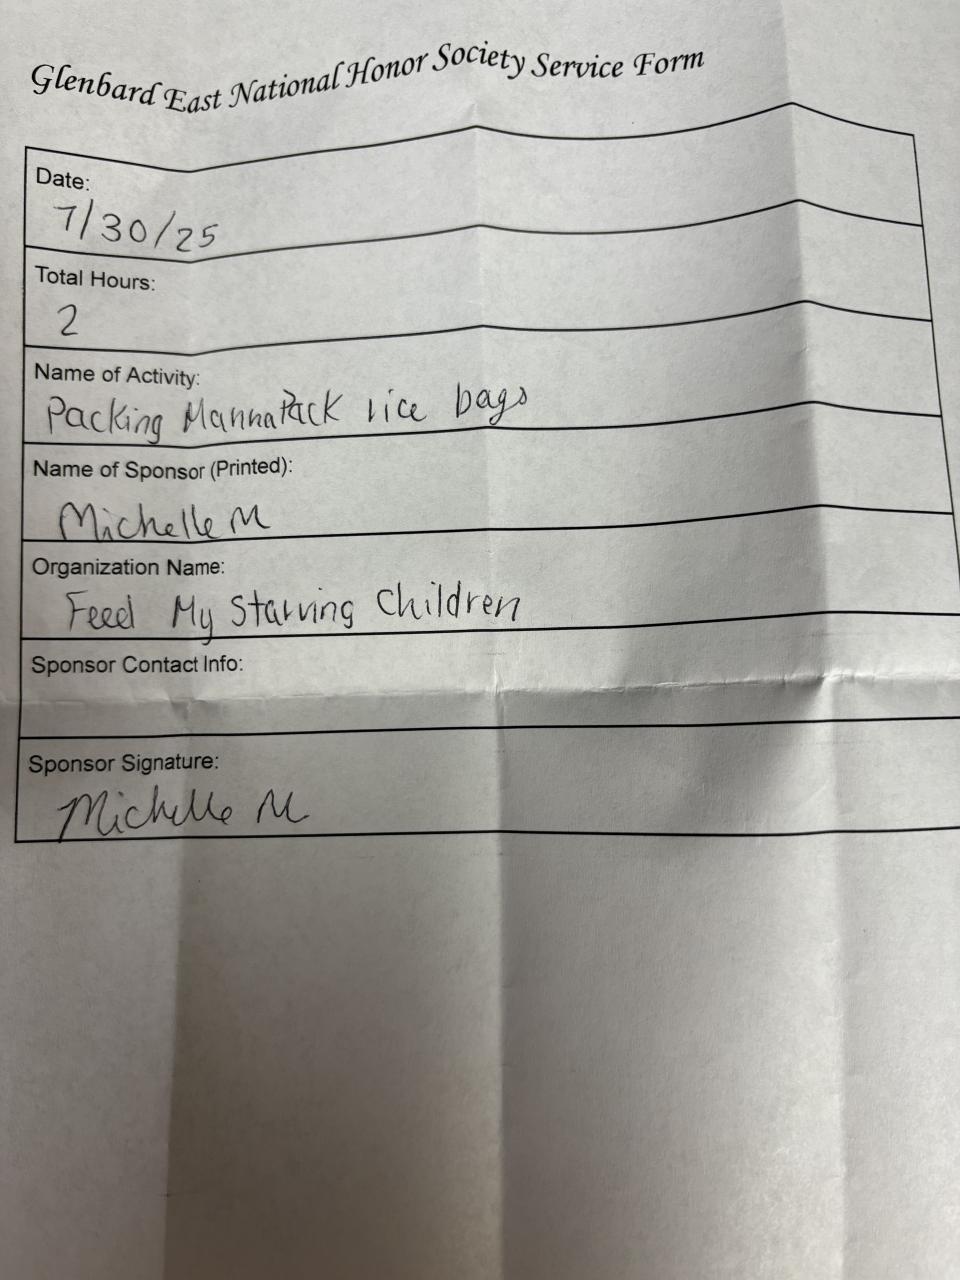 Glenbard East National Honor Society Service Form
Date:
7/30/25
Total Hours:
2
Name of Activity:
Packing MannaPack rice bags
Name of Sponsor (Printed):
Michelle M
Organization Name:
Feed My Starving Children
Sponsor Contact Info:
Sponsor Signature:
Michelle M